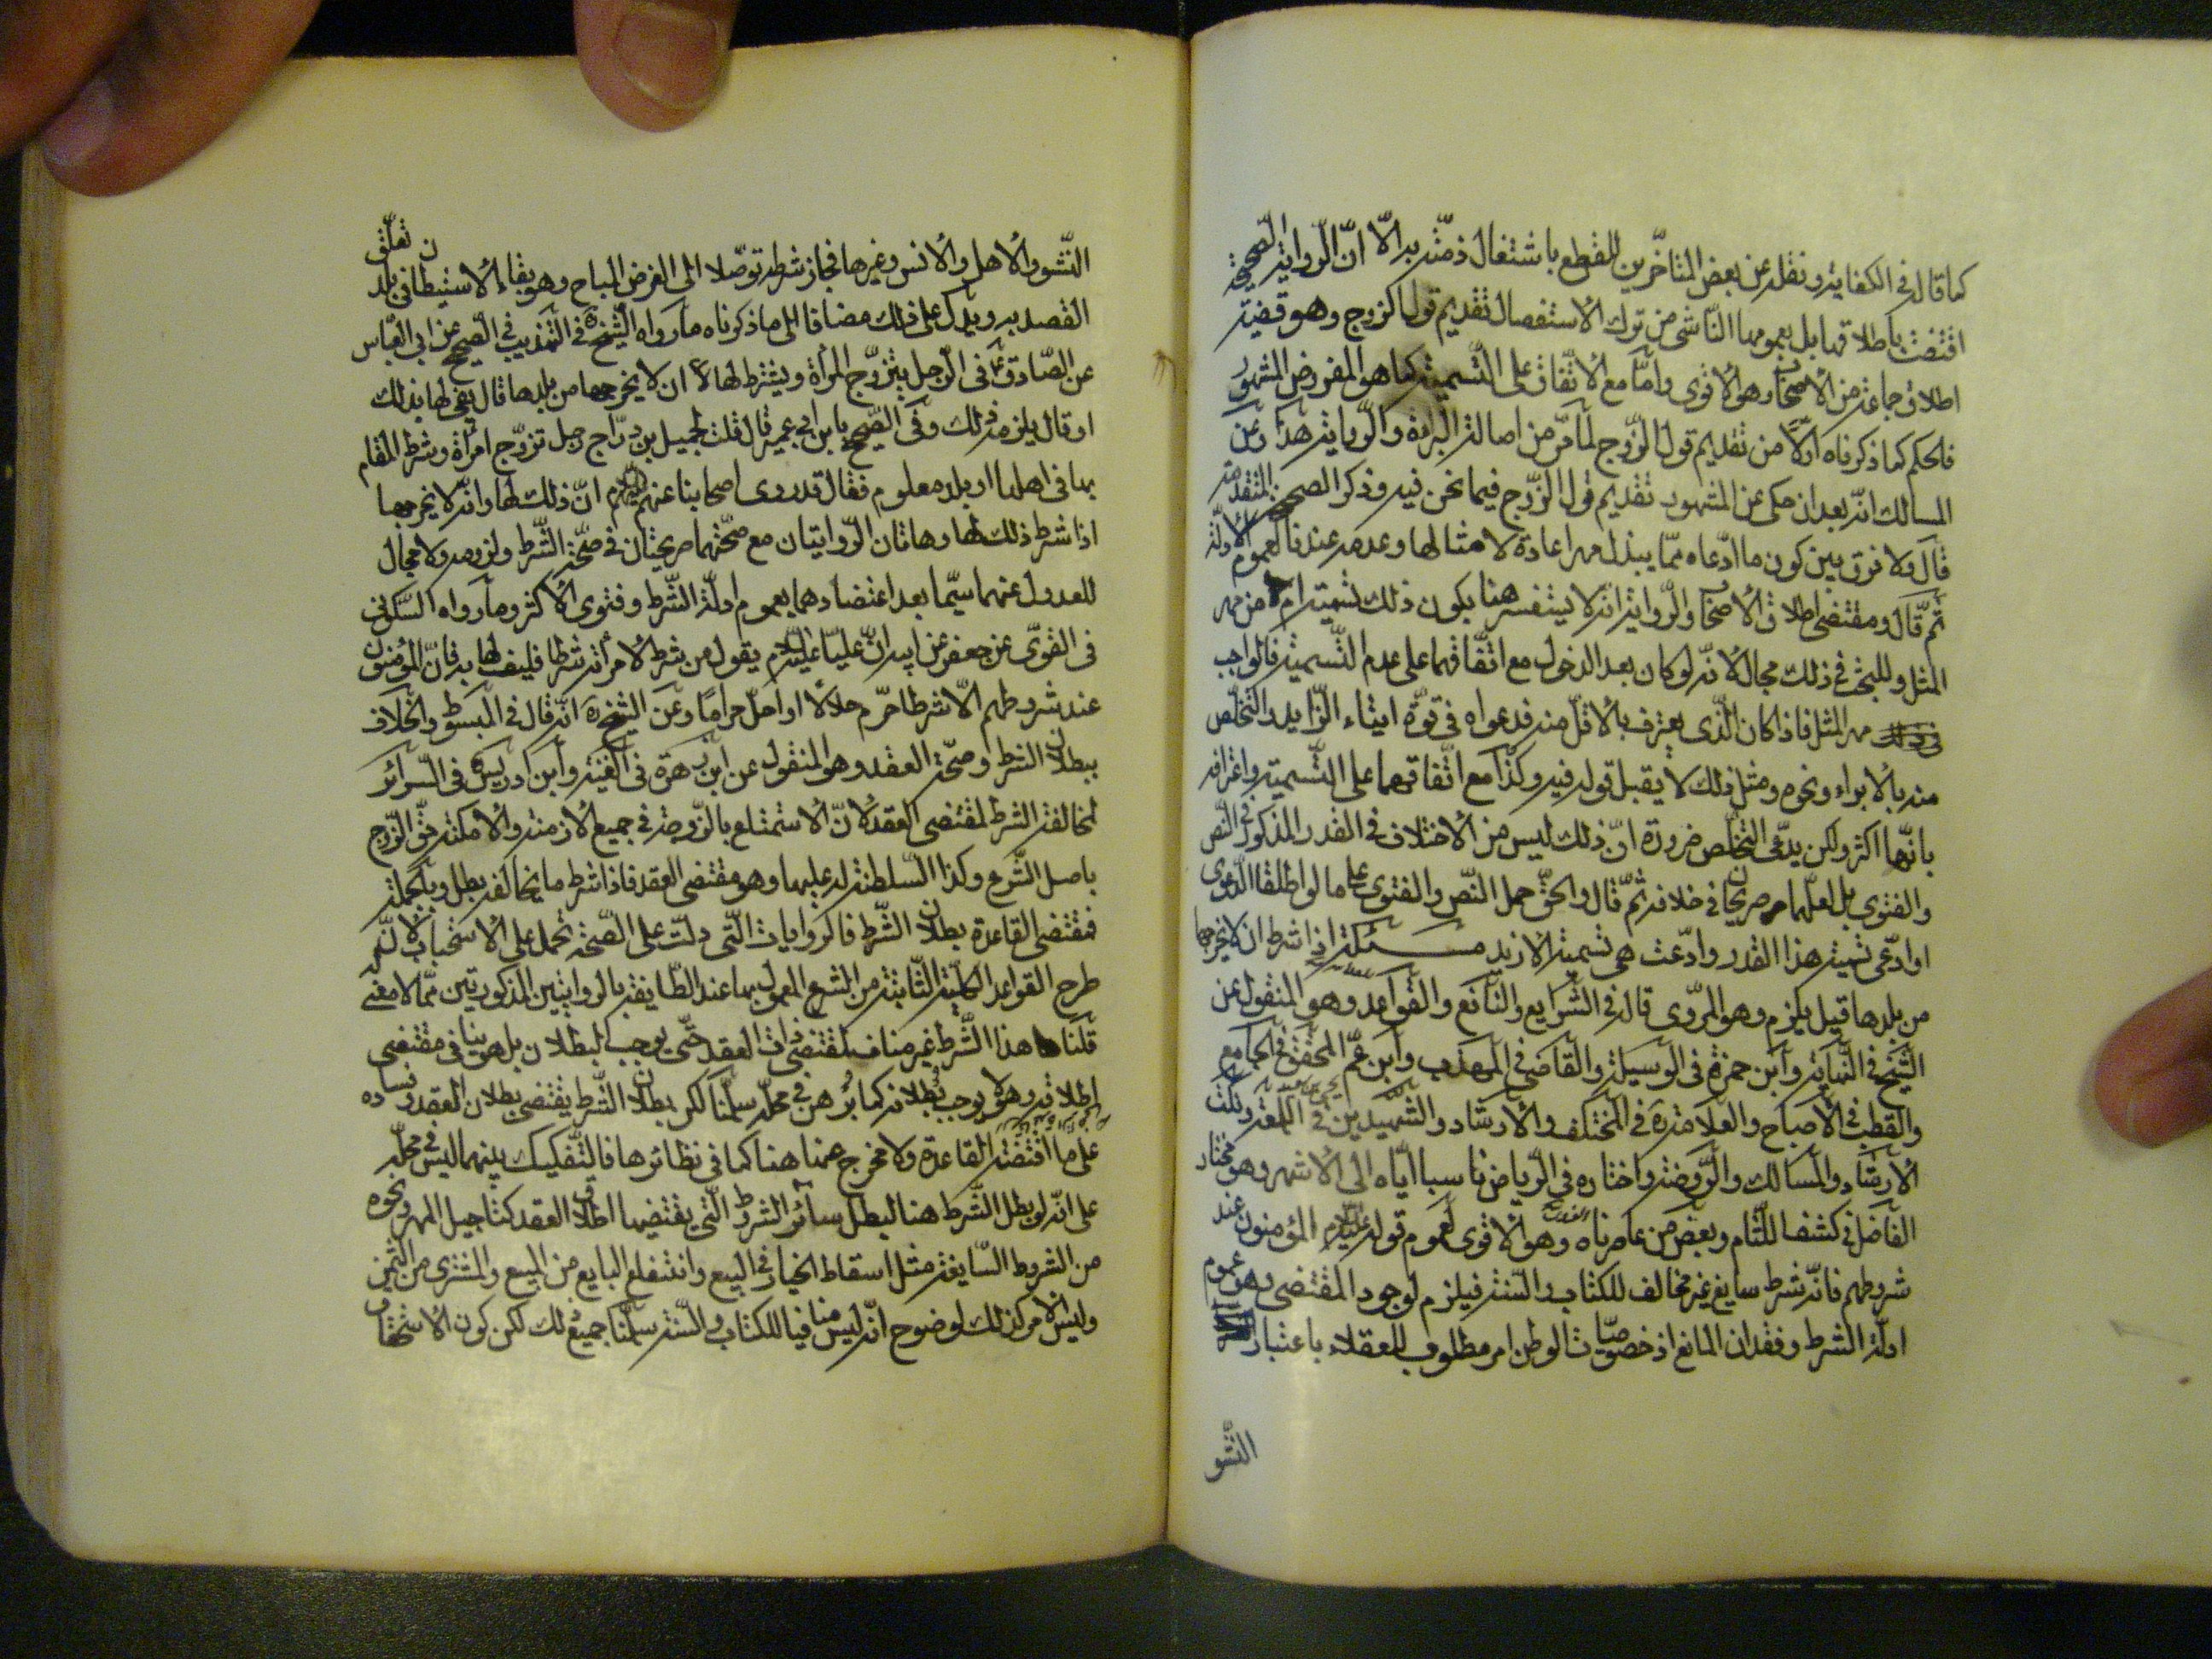 كما قاله في الكفاية ونقله عن بعض المتأخرين للقطع باشتغال ذمته به الا انّ الرواية الصحيحة
اقتضت باطلاقها بل بعمومها الناشي من ترك الاستفصال تقديم قول الزوج وهو قضية
اطلاق جماعة من الاصحاب وهو الاقوى وامّا مع الاتفاق على التسمية كما هو المفروض المشهور
فالحكم كما ذكرناه اوّلا من تقديم قول الزوج لما مرّ من اصالة البراءة والرواية هذا وعن
المسالك انه بعد ان حكى عن المشهور تقديم قول الزوج فيما نحن فيه وذكر الصحيحة المتقدمة
قال ولا فرق بين كون ما ادّعاه ممّا يبذل مهرا عادة لامثالها وعدمه عندنا لعموم الادلة
ثمّ قال ومقتضى اطلاق الاصحاب والرواية انه لا يستفسر هنا بكون ذلك تسمية ام من مهر
المثل وللبحث في ذلك مجال لانه لو كان بعد الدخول مع اتفاقهما على عدم التسمية فالواجب
مهر المثل فاذا كان الذي يعترف به الاقلّ منه فدعواه في قوّة ايتاء الزايد والتخلص
منه بالابراء ونحوه ومثل ذلك لا يقبل قوله فيه وكذا مع اتفاقهما على التسمية واعترافه
بانّها اكثر ولكن يدّعى التخلص ضرورة انّ ذلك ليس من الاختلاف في القدر المذكور في النص
والفتوى بل لعلّهما صريحان في خلافه ثمّ قال والحقّ حمل النصّ والفتوى على ما لو اطلقا الدعوى
او ادّعى تسمية هذا القدر وادّعت هي تسمية الازيد مسئلة اذا شرط ان لا يخرجها
من بلدها قيل يلزم وهو المروى قاله في الشرايع والنافع والقواعد وهو المنقول عن
الشيخ في النهاية وابن حمزة في الوسيلة والقاضي في المهذب وابن عمّ المحقق في الجامع
والقطب في الاصباح والعلامة ره في المختلف والارشاد والشهيدين في اللمعة ونكت
الارشاد والمسالك والروضة واختاره في الرياض ناسبا ايّاه الى الاشهر وهو مختار
الفاضل في كشف اللثام وبعض من عاصرناه وهو الاقوى لعموم قوله عليه السلام المؤمنون عند
شروطهم فانّه شرط سايغ غير مخالف للكتاب والسنة فيلزم لوجود المقتضى وهو عموم
ادلة الشرط وفقدان المانع اذ خصوصيّات الوطن امر مطلوب للعقلاء باعتبار
النشو
النّشو والاهل والانس وغيرها فجاز شرطه توصّلا الى الغرض المباح وهو بقاء الاستيطان في بلد تعلّق
القصد به ويدل على ذلك مضافا الى ما ذكرناه ما رواه الشيخ ره في التهذيب في الصحيح عن ابي العباس
عن الصادق ع في الرجل يتزوج المرأة ويشترط لها ان لا يخرجها من بلدها قال يفي لها بذلك
او قال يلزمه ذلك وفي الصحيح بابن ابي عمير قال قلت لجميل بن دراج رجل تزوّج امرأة وشرط المقام
بها في اهلها او بلد معلوم فقال قد روى اصحابنا عنهم السلام انّ ذلك لها وانّه لا يخرجها
اذا شرط ذلك لها وهاتان الروايتان مع صحّتهما صريحتان في صحّة الشرط ولزومه ولا مجال
للعدول عنهما سيّما بعد اعتضادهما بعموم ادلة الشرط وفتوى الاكثر وما رواه السكوني
في القوى عن جعفر عن ابيه انّ عليّا عليه السلام يقول من شرط لامرأته شرطا فليف لها به فانّ المؤمنون
عند شروطهم الا شرطا حرّم حلالا او احلّ حراما وعن الشيخ ره انّه قال في المبسوط والخلاف
ببطلان الشرط وصحّة العقد وهو المنقول عن ابن زهرة في الغنية وابن ادريس ره في السرائر
لمخالفة الشرط لمقتضى العقد لانّ الاستمتاع بالزوجة في جميع الازمنة والامكنة حقّ الزوج
باصل الشرع وكذا السلطنة له عليها وهو مقتضى العقد فاذا شرط ما يخالفه بطل وبالجملة
فمقتضى القاعدة بطلان الشرط فالروايات التي دلّت على الصحة تحمل على الاستحباب لانّ
طرح القواعد الكلية الثابتة من الشرع المعمول بها عند الطايفة بالروايتين المذكورتين ممّا لا معنى له
قلنا هذا الشرط غير مناف لمقتضى ذات العقد حتّى يوجب البطلان بل هو ينافى مقتضى
اطلاقه وهو لا يوجب بطلانه كما برهن في محلّه سلّمنا لكن بطلان الشرط يقتضى بطلان العقد وفساده
على ما اقتضته القاعدة ولا مخرج عنها هنا كما في نظائرها فالتفكيك بينهما ليس في محلّه
على انّه لو بطل الشرط هنا لبطل سائر الشروط التي يقتضيها اطلاق العقد كتأجيل المهر ونحوه
من الشروط السايغة مثل اسقاط الخيار في البيع وانتفاع البايع من المبيع والمشترى من الثمن
وليس الامر كذلك لوضوح انّه ليس منافيا للكتاب والسنة سلّمنا جميع ذلك لكن كون الاستحقاق